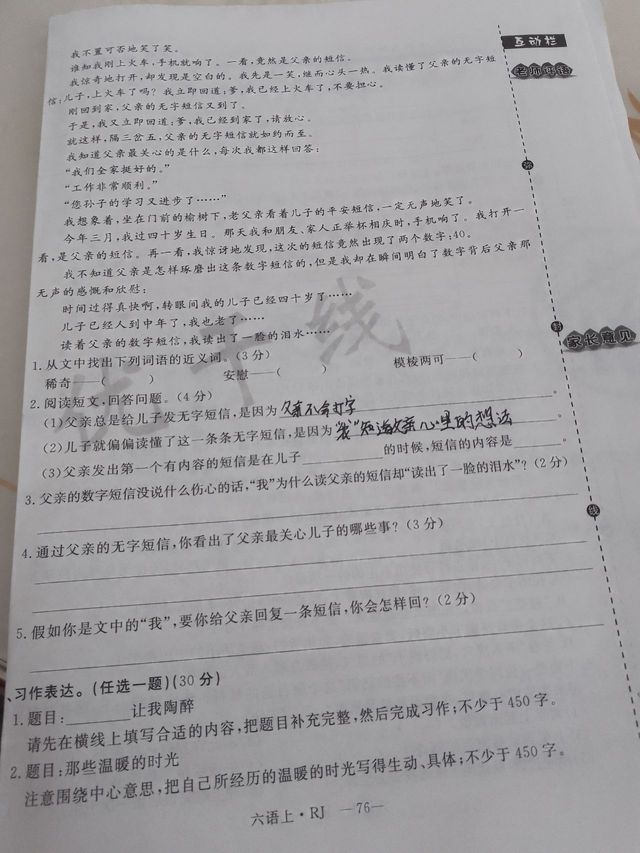 我不置可否地笑了笑。
谁知我刚上火车,手机就响了。一看,竟然是父亲的短信。
我惊奇地打开,却发现是空白的。我先是一笑,继而心头一热。我读懂了父亲的无字短
信:儿子,上火车了吗?我立即回道:爹,我已经上火车了,不要担心。
刚回到家,父亲的无字短信又到了。
于是,我又立即回道:爹,我已经到家了,请放心。
就这样,隔三岔五,父亲的无字短信就如约而至。
我知道父亲最关心的是什么,每次我都这样回答:
“我们全家挺好的。”
“工作非常顺利。”
“您孙子的学习又进步了……”
我想象着,坐在门前的榆树下,老父亲看着儿子的平安短信,一定无声地笑了。
今年三月,我过四十岁生日。那天我和朋友、家人正举杯相庆时,手机响了。我打开一
看,是父亲的短信。再一看,我惊讶地发现,这次的短信竟然出现了两个数字:40。
我不知道父亲是怎样琢磨出这条数字短信的,但是我却在瞬间明白了数字背后父亲那
无声的感慨和欣慰:
时间过得真快啊,转眼间我的儿子已经四十岁了……
儿子已经人到中年了,我也老了……
读着父亲的数字短信,我读出了一脸的泪水……
1.从文中找出下列词语的近义词。(3分)
稀奇——( ) 安慰——( ) 模棱两可——( )
2.阅读短文,回答问题。(4分)
(1)父亲总是给儿子发无字短信,是因为父亲不会打字。
(2)儿子就偏偏读懂了这一条条无字短信,是因为“我”知道父亲心里的想法。
(3)父亲发出第一个有内容的短信是在儿子________的时候,短信的内容是______。
3.父亲的数字短信没说什么伤心的话,“我”为什么读父亲的短信却“读出了一脸的泪水”?(2分)
4.通过父亲的无字短信,你看出了父亲最关心儿子的哪些事?(3分)
5.假如你是文中的“我”,要你给父亲回复一条短信,你会怎样回?(2分)
、习作表达。(任选一题)(30分)
1.题目:________让我陶醉
请先在横线上填写合适的内容,把题目补充完整,然后完成习作;不少于450字。
2.题目:那些温暖的时光
注意围绕中心意思,把自己所经历的温暖的时光写得生动、具体;不少于450字。
六语上·RJ —76—
互动栏
名师评语
弥
封
家长意见
线